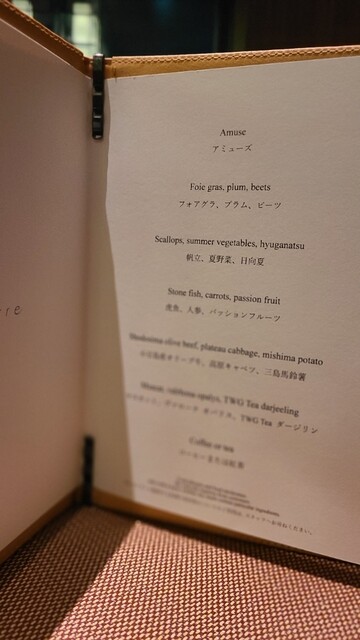 Amuse
アミューズ
Foie gras, plum, beets
フォアグラ、プラム、ビーツ
Scallops, summer vegetables, hyuganatsu
帆立、夏野菜、日向夏
Stone fish, carrots, passion fruit
虎魚、人参、パッションフルーツ
olive beef, plateau cabbage, mishima potato
オリーブ牛、高原キャベツ、三島馬鈴薯
TWG Tea darjeeling
TWG Tea ダージリン
Coffee or tea
コーヒーまたは紅茶